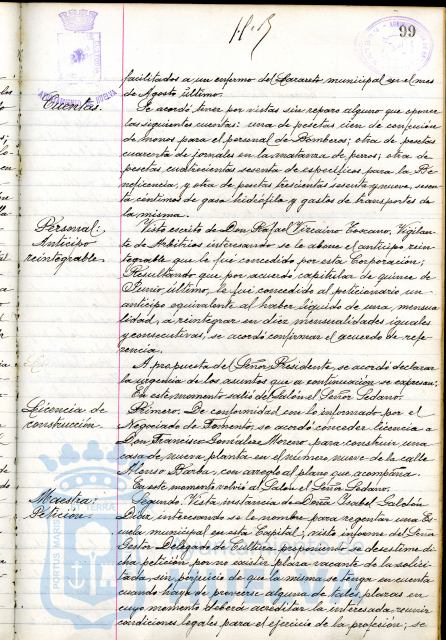 99
facilitados a un enfermo del Lazareto municipal en el mes
de Agosto último.
Cuentas.
Se acordó tener por vistas sin reparo alguno que oponer
las siguientes cuentas: una de pesetas cien de confección
de monos para el personal de Bomberos; otra de pesetas
cuarenta de jornales en la matanza de perros; otra de
pesetas cuatrocientas sesenta de específicos para la Be-
neficencia, y otra de pesetas trescientas sesenta y nueve, sesen-
ta céntimos de gasa hidrófila y gastos de transportes de
la misma.
Personal:
Anticipo
reintegrable.
Visto escrito de Don Rafael Vizcaino Toscano, Vigilan-
te de Arbitrios interesando se le abone el anticipo rein-
tegrable que le fué concedido por esta Corporación;
Resultando que por acuerdo capitular de quince de
Junio último, le fué concedido al peticionario un
anticipo equivalente al haber líquido de una mensua-
lidad, a reintegrar en diez mensualidades iguales
y consecutivas, se acordó confirmar el acuerdo de refe-
rencia.
A propuesta del Señor Presidente, se acordó declarar
la urgencia de los asuntos que a continuación se expresan:
En este momento salió del Salón el Señor Sedano.
Licencia de
construcción.
Primero. De conformidad con lo informado por el
Negociado de Fomento, se acordó conceder licencia a
Don Francisco Gonzalez Moreno, para construir una
casa de nueva planta en el número nueve de la calle
Alonso Barba, con arreglo al plano que acompaña.
En este momento volvió al Salón el Señor Sedano.
Maestra:
Petición.
Segundo. Vista instancia de Doña Isabel Galdón
Diaz interesando se le nombre para regentar una Es-
cuela municipal en esta Capital; visto informe del Señor
Gestor Delegado de Cultura proponiendo se desestime di-
cha petición, por no existir plaza vacante de la solici-
tada, sin perjuicio de que la misma se tenga en cuenta
cuando haya de proveerse alguna de tales plazas en
cuyo momento deberá acreditar la interesada reunir
condiciones legales para el ejercicio de la profesión; se